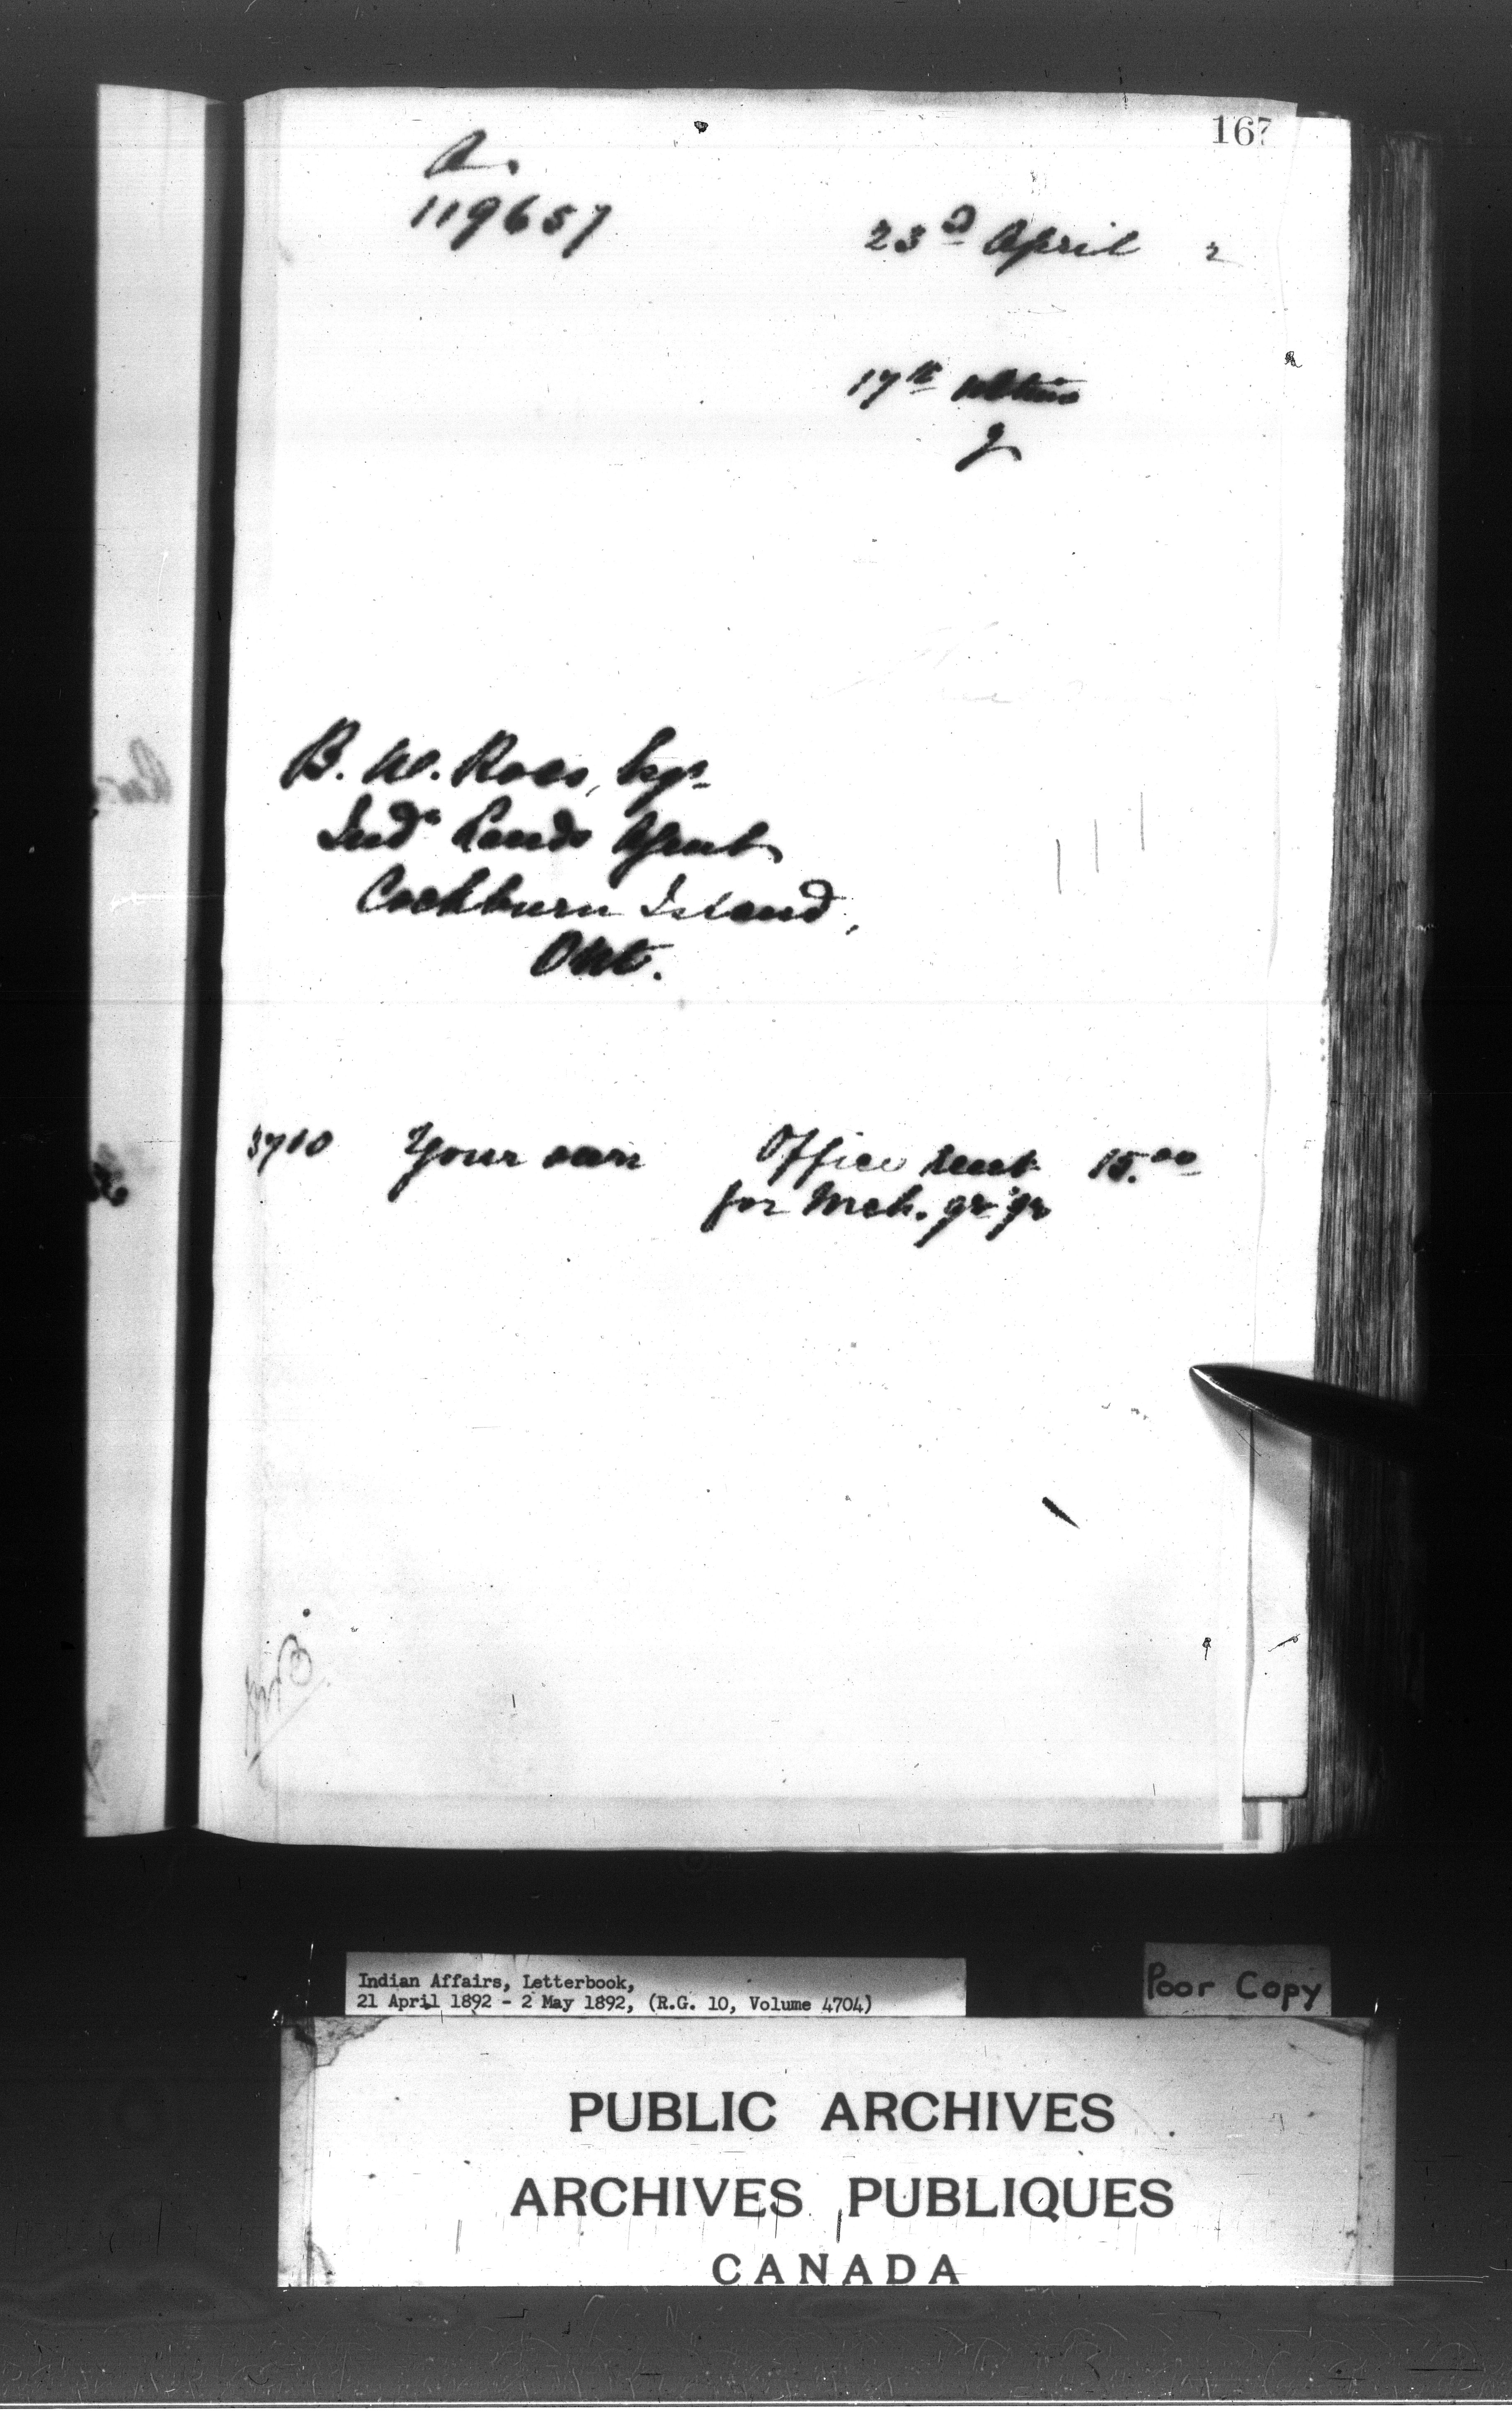 167
A.
119657
23d April 2
17th ultimo
B. W. Ross, Esqr
Indn Lands Agent
Cockburn Island,
Ont.
3710 Your own Office rent 15.00
for Mch. qr
Indian Affairs, Letterbook,
21 April 1892 - 2 May 1892, (R.G. 10, Volume 4704)
Poor Copy
PUBLIC ARCHIVES
ARCHIVES PUBLIQUES
CANADA